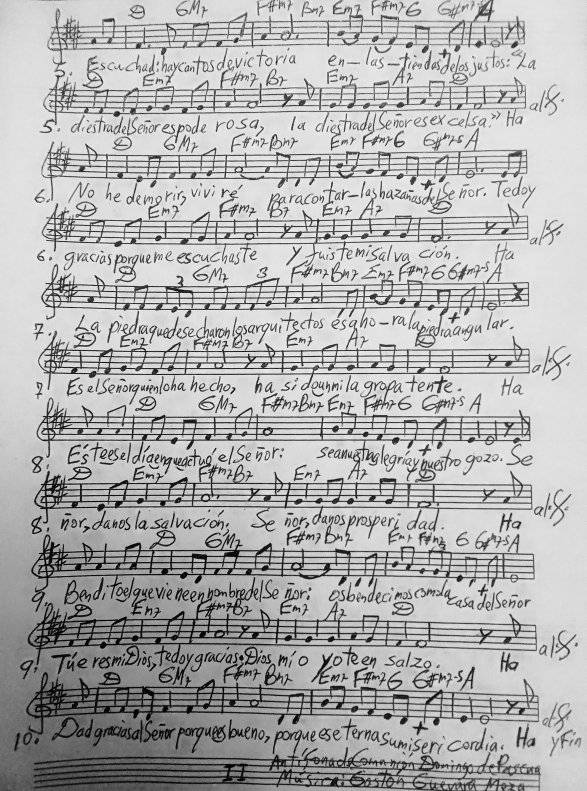 D GM7 F#m7 Bm7 Em7 F#m7 G G#m7-5 A
5. Escuchad: hay cantos de victoria en - las - tiendas de los justos: "La
D Em7 F#m7 B7 Em7 A7 D al S.
5. diestra del Señor es poderosa, la diestra del Señor es excelsa." Ha
D GM7 F#m7 Bm7 Em7 F#m7 G G#m7-5 A
6. No he de morir, viviré para contar - las hazañas del Señor. Te doy
D Em7 F#m7 B7 Em7 A7 D al S.
6. gracias porque me escuchaste y fuiste mi salvación. Ha
D 3 GM7 3 F#m7 Bm7 Em7 F#m7 G G#m7-5 A
7. La piedra que desecharon los arquitectos es aho - ra la piedra angular.
D Em7 F#m7 B7 Em7 A7 D al S.
7 Es el Señor quien lo ha hecho, ha sido un milagro patente. Ha
D GM7 F#m7 Bm7 Em7 F#m7 G G#m7-5 A
8. Este es el día en que actuó el Señor: sea nuestra alegría y nuestro gozo. Se
D Em7 F#m7 B7 Em7 A7 D al S.
8. ñor, danos la salvación. Señor, danos prosperidad. Ha
D GM7 F#m7 Bm7 Em7 F#m7 G G#m7-5 A
9. Bendito el que viene en nombre del Señor: os bendecimos desde la casa del Señor
D Em7 F#m7 B7 Em7 A7 D al S.
9. Tú eres mi Dios, te doy gracias; Dios mío yo te ensalzo. Ha
D GM7 F#m7 Bm7 Em7 F#m7 G G#m7-5 A al S.
10. Dad gracias al Señor porque es bueno, porque es eterna su misericordia. Ha y Fin
Antífona de Comunión Domingo de Pascua
II Música: Gastón Guevara Meza